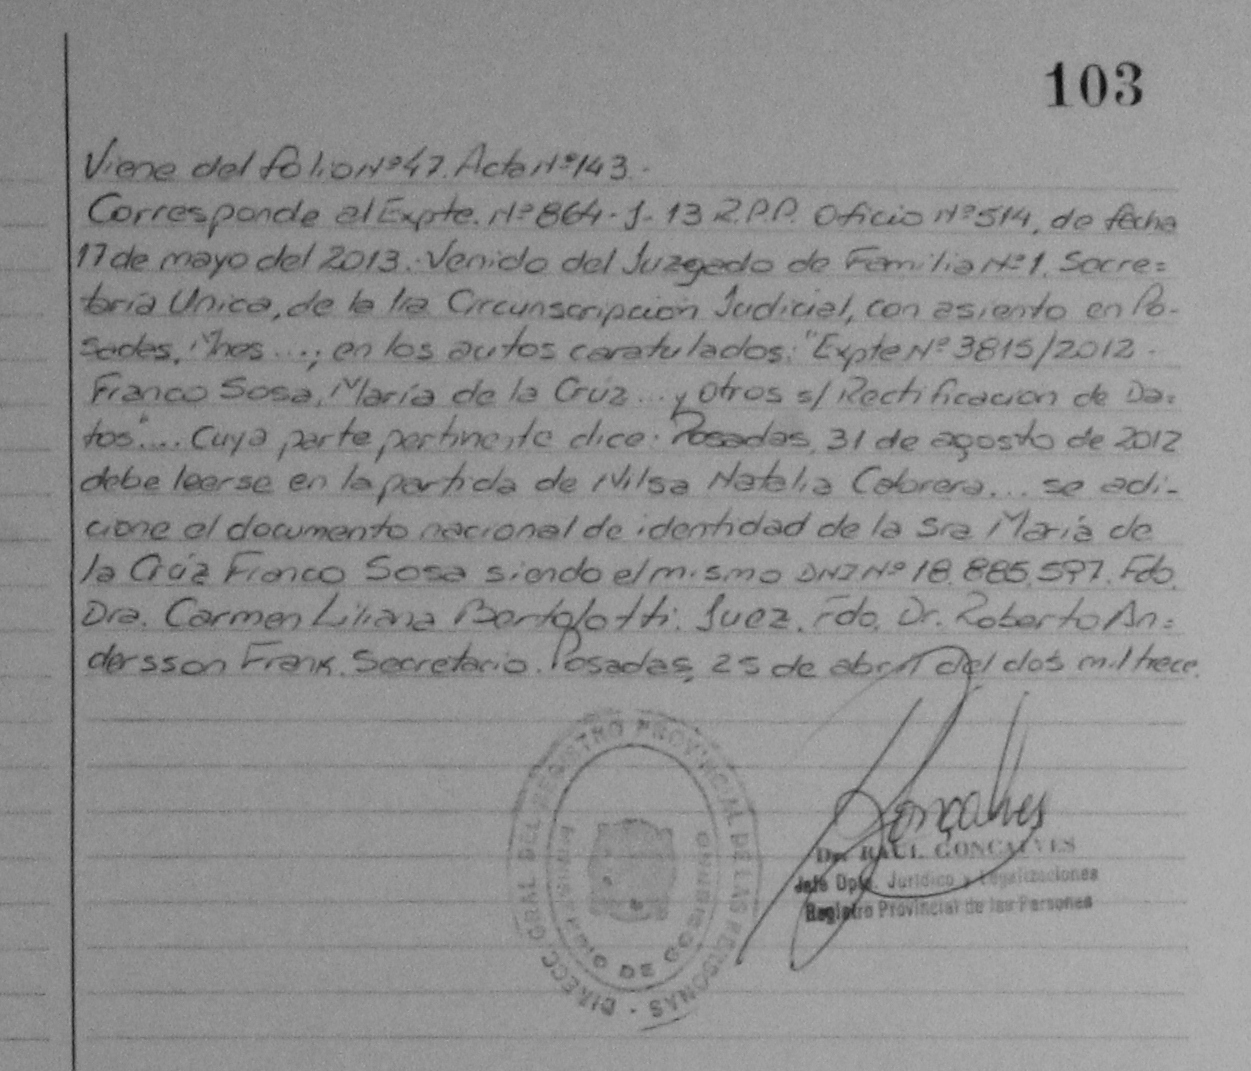 103
Viene del folio Nº 47. Acta Nº 143.-
Corresponde al Expte. Nº 864-J-13 R.P.P. Oficio Nº 514, de fecha
17 de mayo del 2013. Venido del Juzgado de Familia Nº 1. Secre=
taría Unica, de la 1ra Circunscripción Judicial, con asiento en Po-
sadas, Mnes...; en los autos caratulados: "Expte Nº 3815/2012.
Franco Sosa, María de la Crúz... y otros s/ Rectificacion de Da=
tos".... Cuya parte pertinente dice: Posadas, 31 de agosto de 2012
debe leerse en la partida de Nilsa Natalia Cabrera... se adi-
cione el documento nacional de identidad de la Sra María de
la Crúz Franco Sosa siendo el mismo DNI Nº 18.885.597. Fdo.
Dra. Carmen Liliana Bortolotti. Juez. Fdo. Dr. Roberto An=
dersson Frank. Secretario. Posadas, 25 de abril del dos mil trece.
Gonçalves
Dr. RAUL GONCALVES
Jefe Dpto. Jurídico y Legalizaciones
Registro Provincial de las Personas
DIRECC. GRAL DEL REGISTRO PROVINCIAL DE LAS PERSONAS
DE GOBIERNO